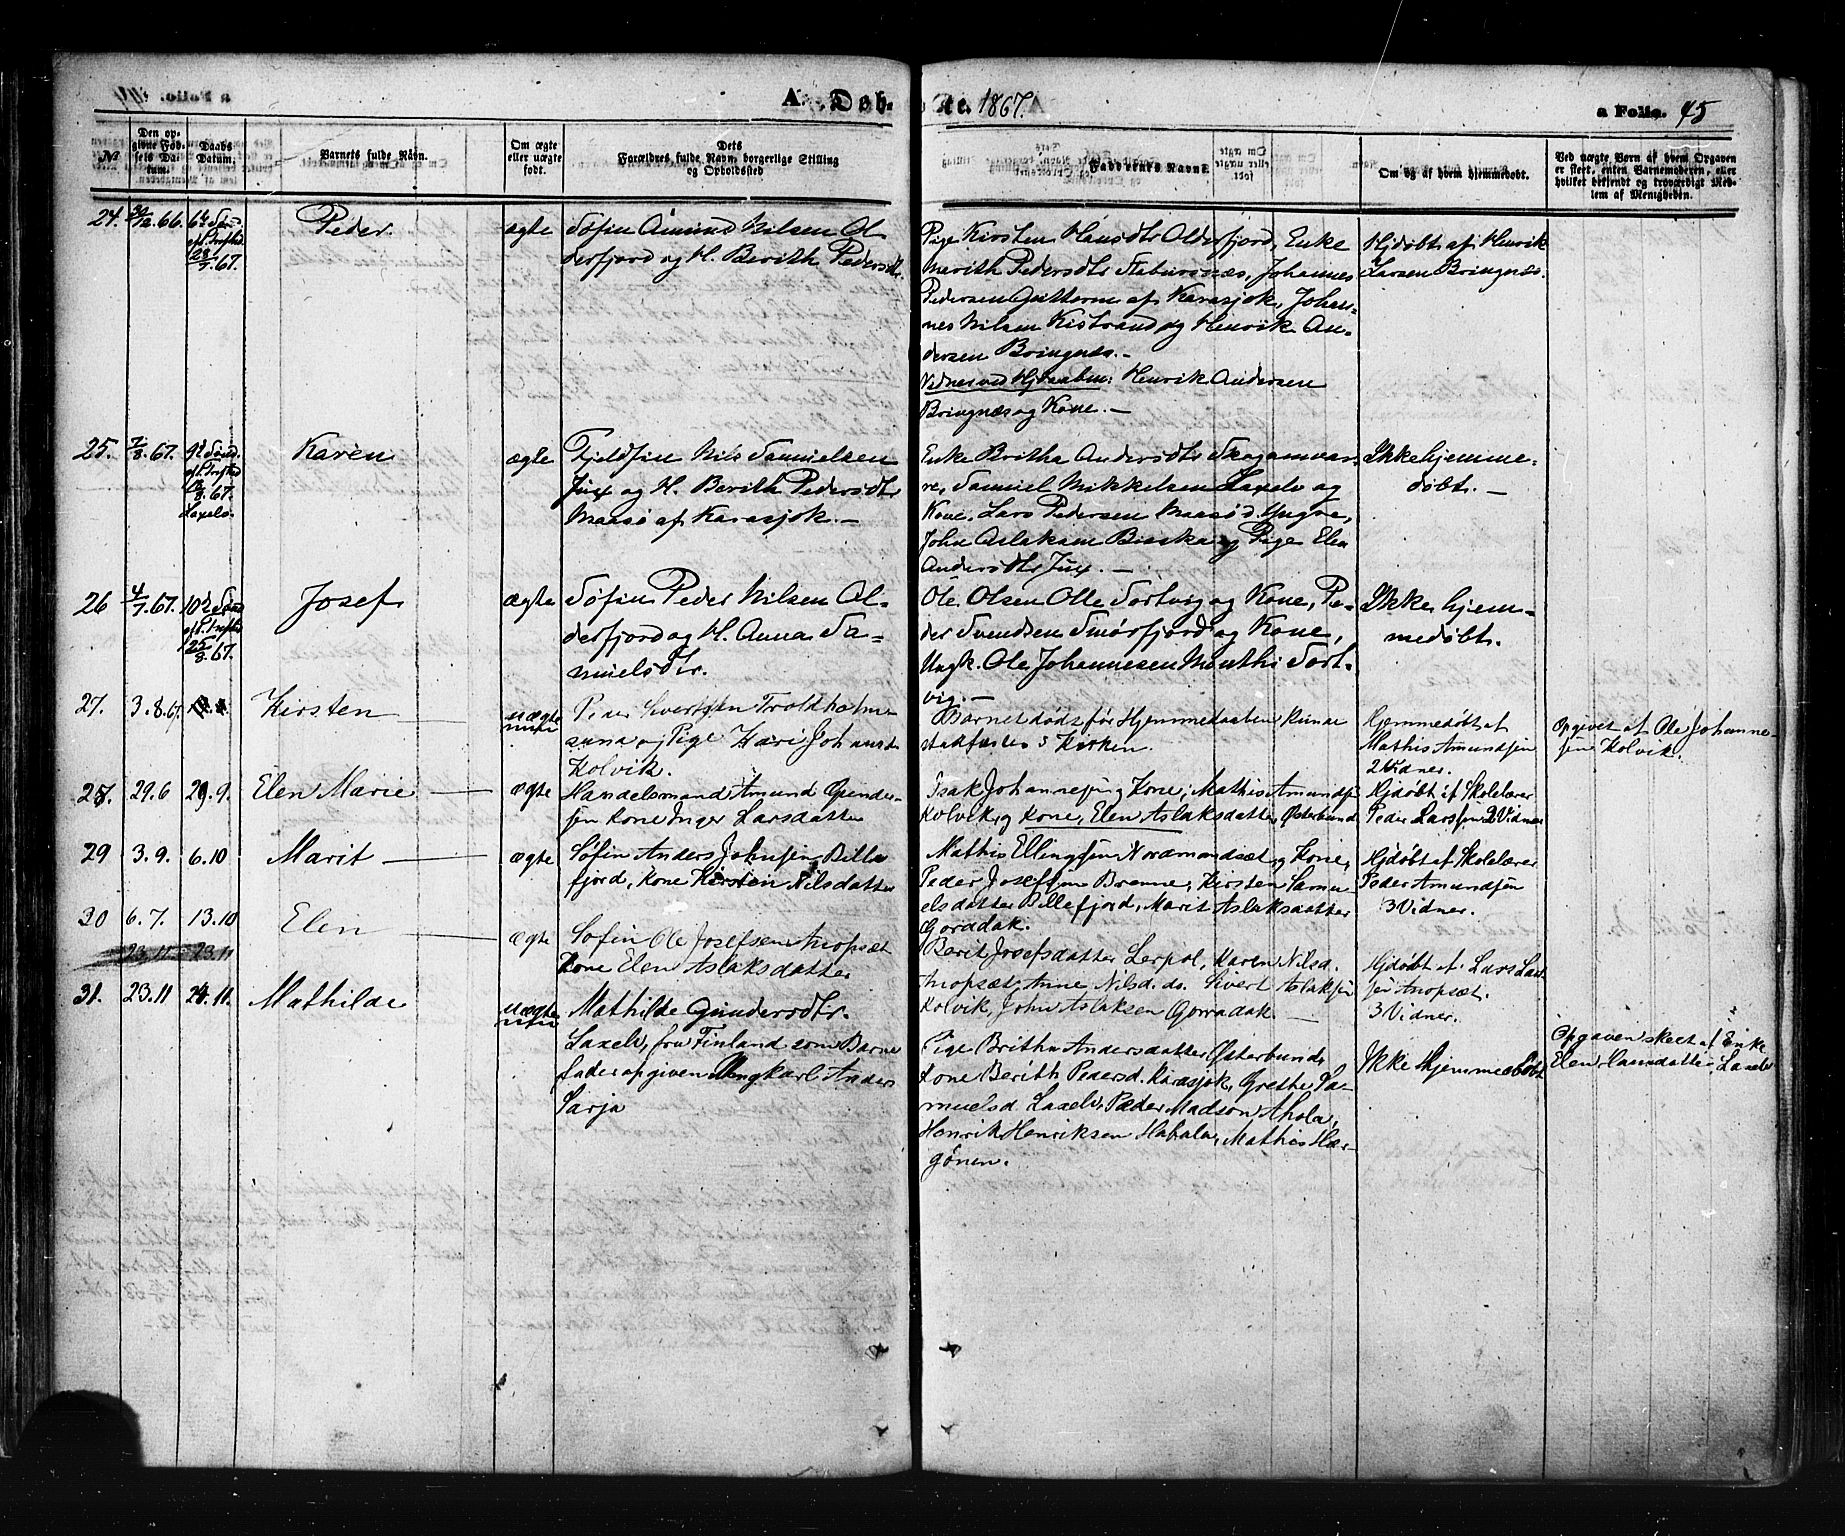 A. Døb-
te. 1867.
a Folio. 45
№
Den op-
givne Fød-
sels Da-
tum.
Daabs
Datum.
Barnets fulde Navn.
Om ægte
eller uægte
født.
Dets
Forældres fulde Navn, borgerlige Stilling
og Opholdssted
Faddrenes Navne.
Om og af hvem hjemmedøbt.
Ved uægte Børn af hvem Opgaven
er skeet, enten Barnemoderen, eller
hvilket bekjendt og troværdigt Med-
lem af Menigheden.
24. 31/12.66.
6te Sønd
ef. Trefhed
28/7.67.
Peder
ægte
Søfin Amund Nilsen Ol-
derfjord og H. Berith Pedersdtr.
Pige Kirsten Hansdtr Olderfjord, Enke
Merith Pedersdtr Stabursnæs, Johannes
Pedersen Guttorm af Karasjok, Johan-
nes Nilsen Kistrand og Henrik An-
dersen Bringnæs.-
Vidner ved Hjdaaben: Henrik Andersen
Bringnæs og Kone. -
Hjdøbt af Henrik
Larsen Bringnæs.
25. 7/3.67.
9de Sønd.
ef. Trefhed
18/8.67.
Laxelv.
Karen
ægte
Fjeldfin Nils Samuelsen
Jux og H. Berith Pedersdtr
Maasø af Karasjok. -
Enke Britha Andersdtr Skoganvar-
re, Samuel Mikkelsen Laxelv og
Kone, Lars Pedersen Maasø d. Yngre,
John Aslaksen Bieska og Pige Elen
Andersdtr Jux. -
Ikke hjemme-
døbt. -
26 4/7.67.
10de Sønd
ef. Trefhed
25/8.67.
Josef
ægte
Søfin Peder Nilsen Ol-
derfjord og H. Anna Sa-
muelsdtr.
Ole Olsen Olle Sortvig og Kone, Pe-
der Svendsen Smørfjord og Kone,
Ungk. Ole Johannesen Menthi Sort-
vig. -
Ikke hjem-
medøbt.
27. 3.8.67.
Kirsten
uægte
Peder Sivertsen Troldholm-
sund og Pige Kari Johansd
Kolvik.
Barnet døds før Hjemmedaaben kunne
stadfæstes i Kirken.
Hjemmedøbt af
Mathis Amundsen
2 Vidner.
Opgivet af Ole Johanne-
sen Kolvik.
28. 29.6 29.9.
Elen Marie
ægte
Handelsmand Amund Gunder-
sen Kone Inger Larsdatter
Isak Johannesen og Kone, Mathis Amundsen
Kolvik og Kone, Elen Aslaksdatter Østerbund
Hjdøbt af Skolelærer
Peder Larssen 2 Vidner
29 3.9. 6.10
Marit
ægte
Søfin Anders Johnsen Bille
fjord, Kone Kirsten Nilsdatter
Mathis Ellingsen Nordmandset og Kone,
Peder Josefsen Brenne, Kirsten Samu
elsdatter Billefjord, Marit Aslaksdatter
Goradak.
Hjdøbt af Skolelærer
Peder Amundsen
3 Vidner.
30 6.7. 13.10
23.11 23.11
Elen
ægte
Søfin Ole Josefsen Anopsæt
Kone Elen Aslaksdatter
Berit Josefsdatter Lerpol, Karen Nilsd.
Anopsæt, Anne Nilsd. ds. Sivert Aslaksen
Kolvik, John Aslaksen Gorradak.
Hjdøbt af Lars Lar
sen Anopsæt.
3 Vidner.
31. 23.11 24.11.
Mathilde
uægte
Mathilde Gundersdtr.
Laxelv, fra Finland som Barne
fader opgiven Ungkarl Anders
Sarja
Pige Britha Andersdatter Østerbund,
Kone Berith Pedersd. Karasjok, Grethe Sa-
muelsd. Laxelv, Peder Madson Ahola,
Henrik Henriksen Habala, Mathis Hæ-
gönen.
Ikke Hjemmedøbt
Opgaven skeet af Enke
Elen Hansdatter Laxelv